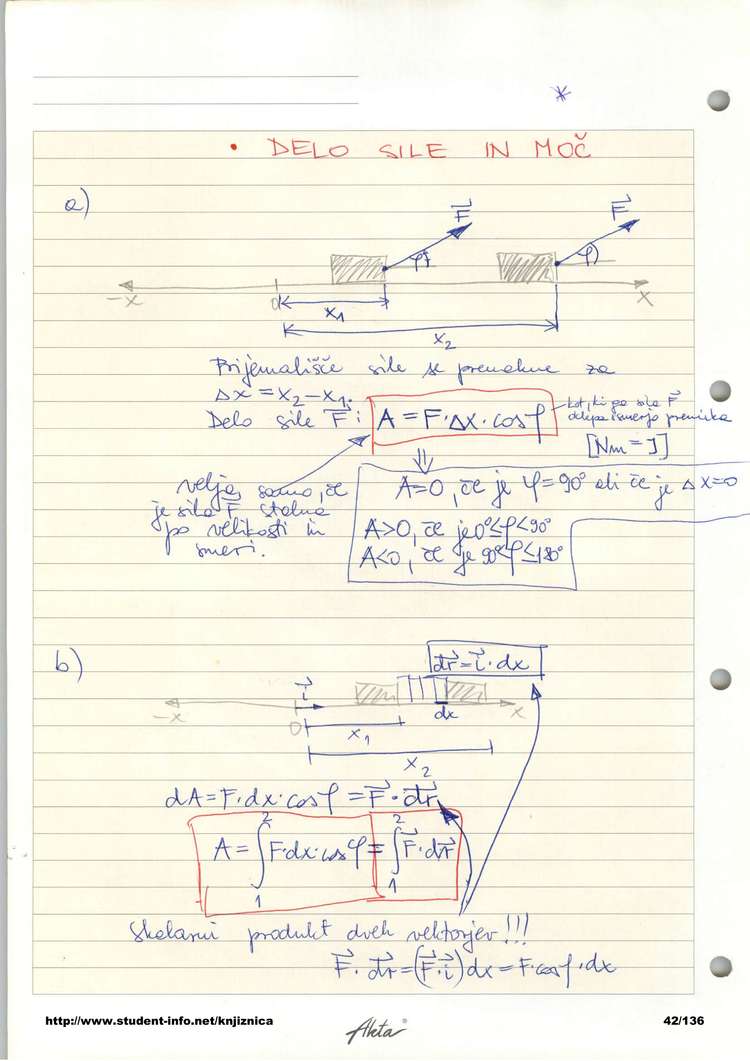 *
• DELO SILE IN MOČ
a)
F⃗
F⃗
φ
φ
-x
0
x
x₁
x₂
Prijemališče sile se premakne za
Δx = x₂ - x₁.
Delo sile F⃗: A = F·Δx·cosφ
kot, ki ga sila F⃗
oklepa s smerjo premika
[Nm = J]
⇓
velja samo, če
je sila F⃗ stalna
po velikosti in
smeri.
A=0, če je φ=90° ali če je Δx=0
A>0, če je 0°≤φ<90°
A<0, če je 90°<φ≤180°
b)
dr⃗ = i⃗·dx
i⃗
-x
0
dx
x
x₁
x₂
dA = F·dx·cosφ = F⃗·dr⃗
A = ∫₁² F·dx·cosφ = ∫₁² F⃗·dr⃗
Skalarni produkt dveh vektorjev!!!
F⃗·dr⃗ = (F⃗·i⃗)dx = F·cosφ·dx
http://www.student-info.net/knjiznica
Aleta
42/136